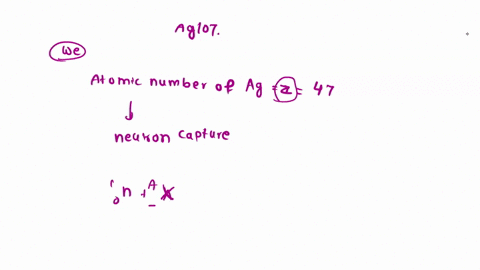 Ag107.
We
Atomic number of Ag = z = 47
neuron capture
¹₀n + ᴬ X